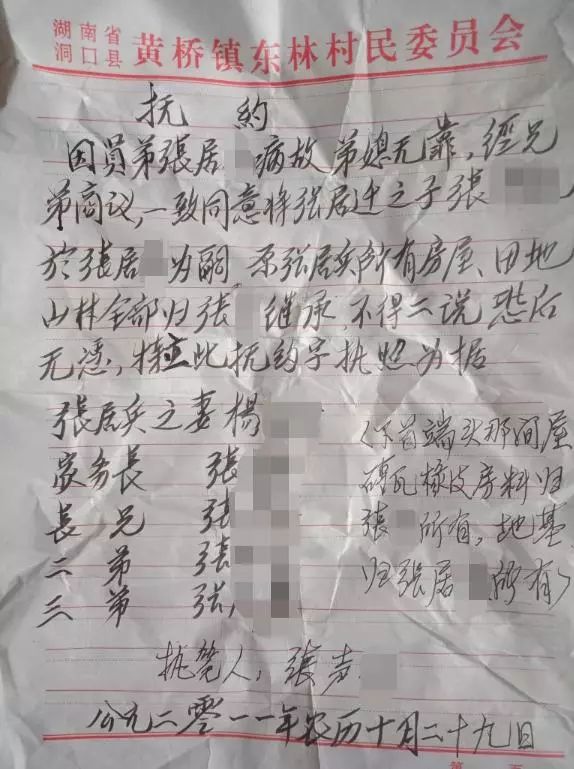 湖南省
洞口县
黄桥镇东林村民委员会
抚 約
因员弟張居 病故弟媳无靠,經兄
弟商议,一致同意将张居迁之子張
於張居 为嗣,原张居兵所有房屋、田地
山林全部归张 继承,不得二说恐后
无凭,特立此抚约字执照为据
張居兵之妻楊
家务長 張
長兄 張
二弟 張
三弟 張
(下首端头那间屋
砖瓦椽皮房料归
張 所有,地基
归張居 所有)
执笔人:張声
公元二零一一年农历十月二十九日
第 页